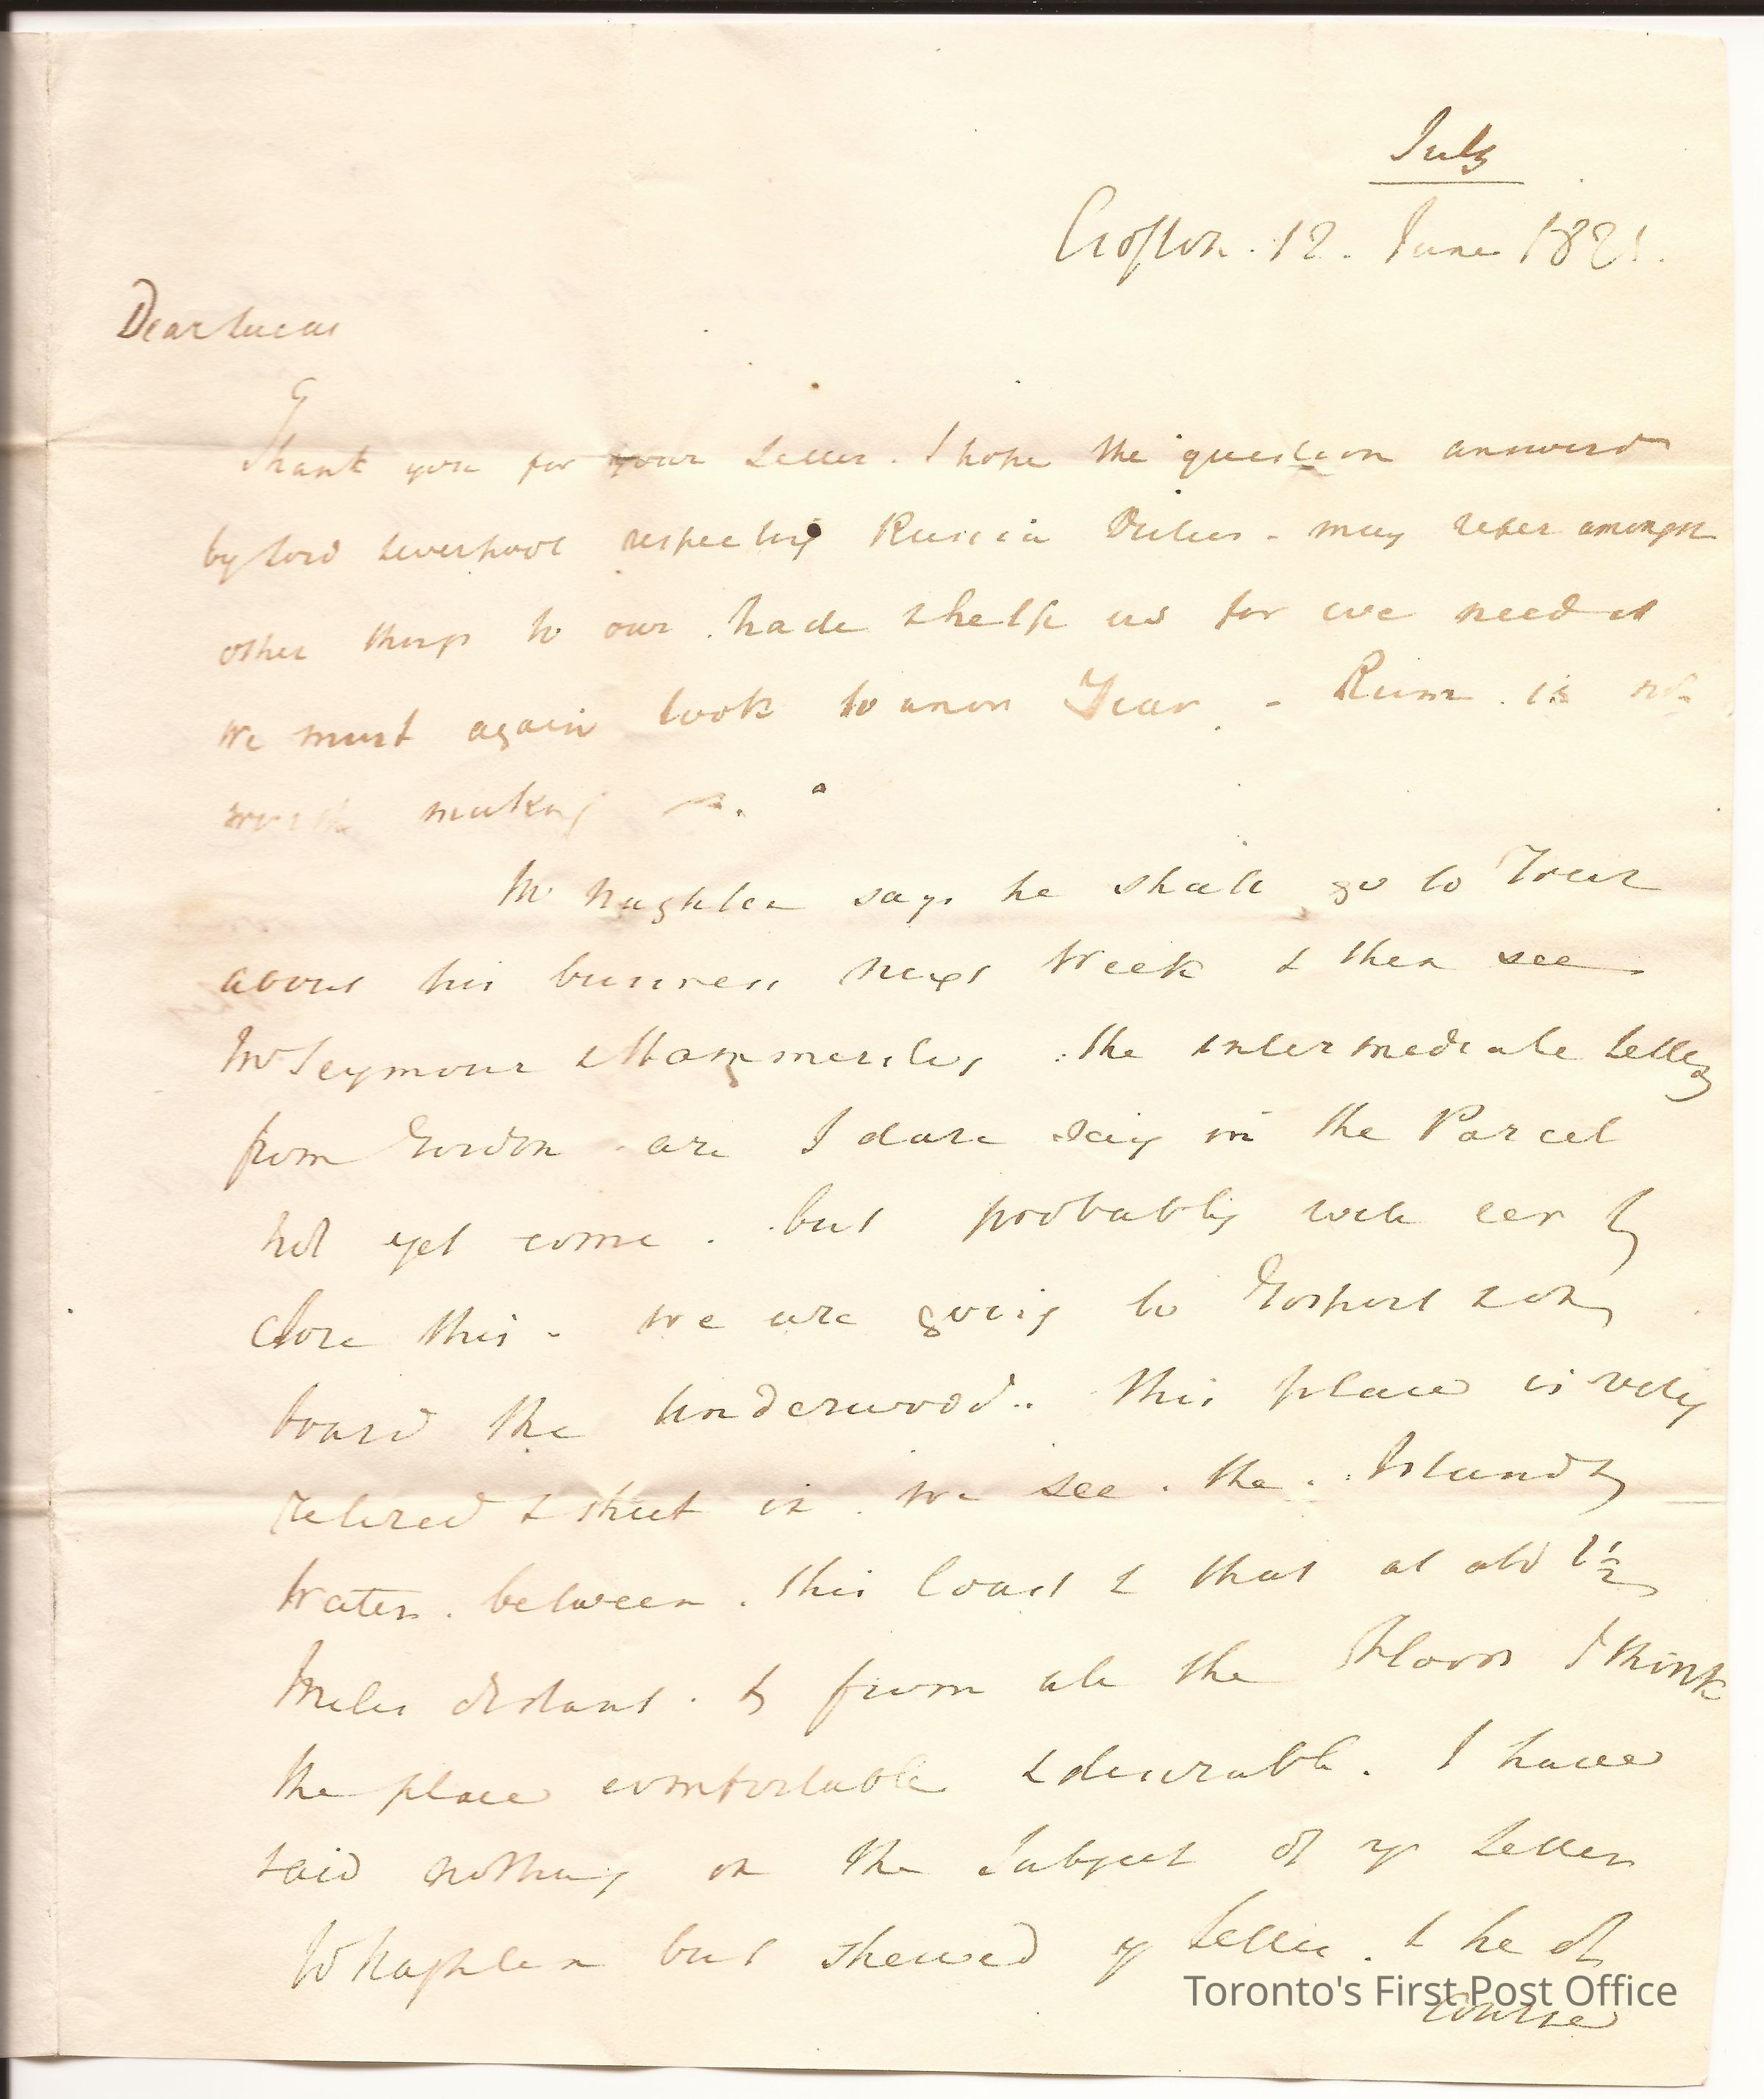 July
Crofton. 12. June 1821.
Dear Lucas
Thank you for your Letter. I hope the question answerd
by Lord Liverpool respecting Russia Duties - may refer amongst
other things to our trade & help us for we need it
We must again look to anor Year. - Rum. is not
worth making
Mr Naghten says he shall go to Town
about his business next Week & then see
Mr Seymour & Hammersley. the intermediate Letters
from Gordon are I dare say in the Parcel
not yet come. but probably will ere I
close this - We are going to Gosport & on
board the Underwood. This place is very
retired & shut in. We see. the. Island &
Water. between. this Coast & that at abt 1½
Miles distant. & from all the Floors I think
the place comfortable & desirable. I have
said nothing on the Subject of yr Letter
to Naghten but shewed yr Letter. & he of
course
Toronto's First Post Office